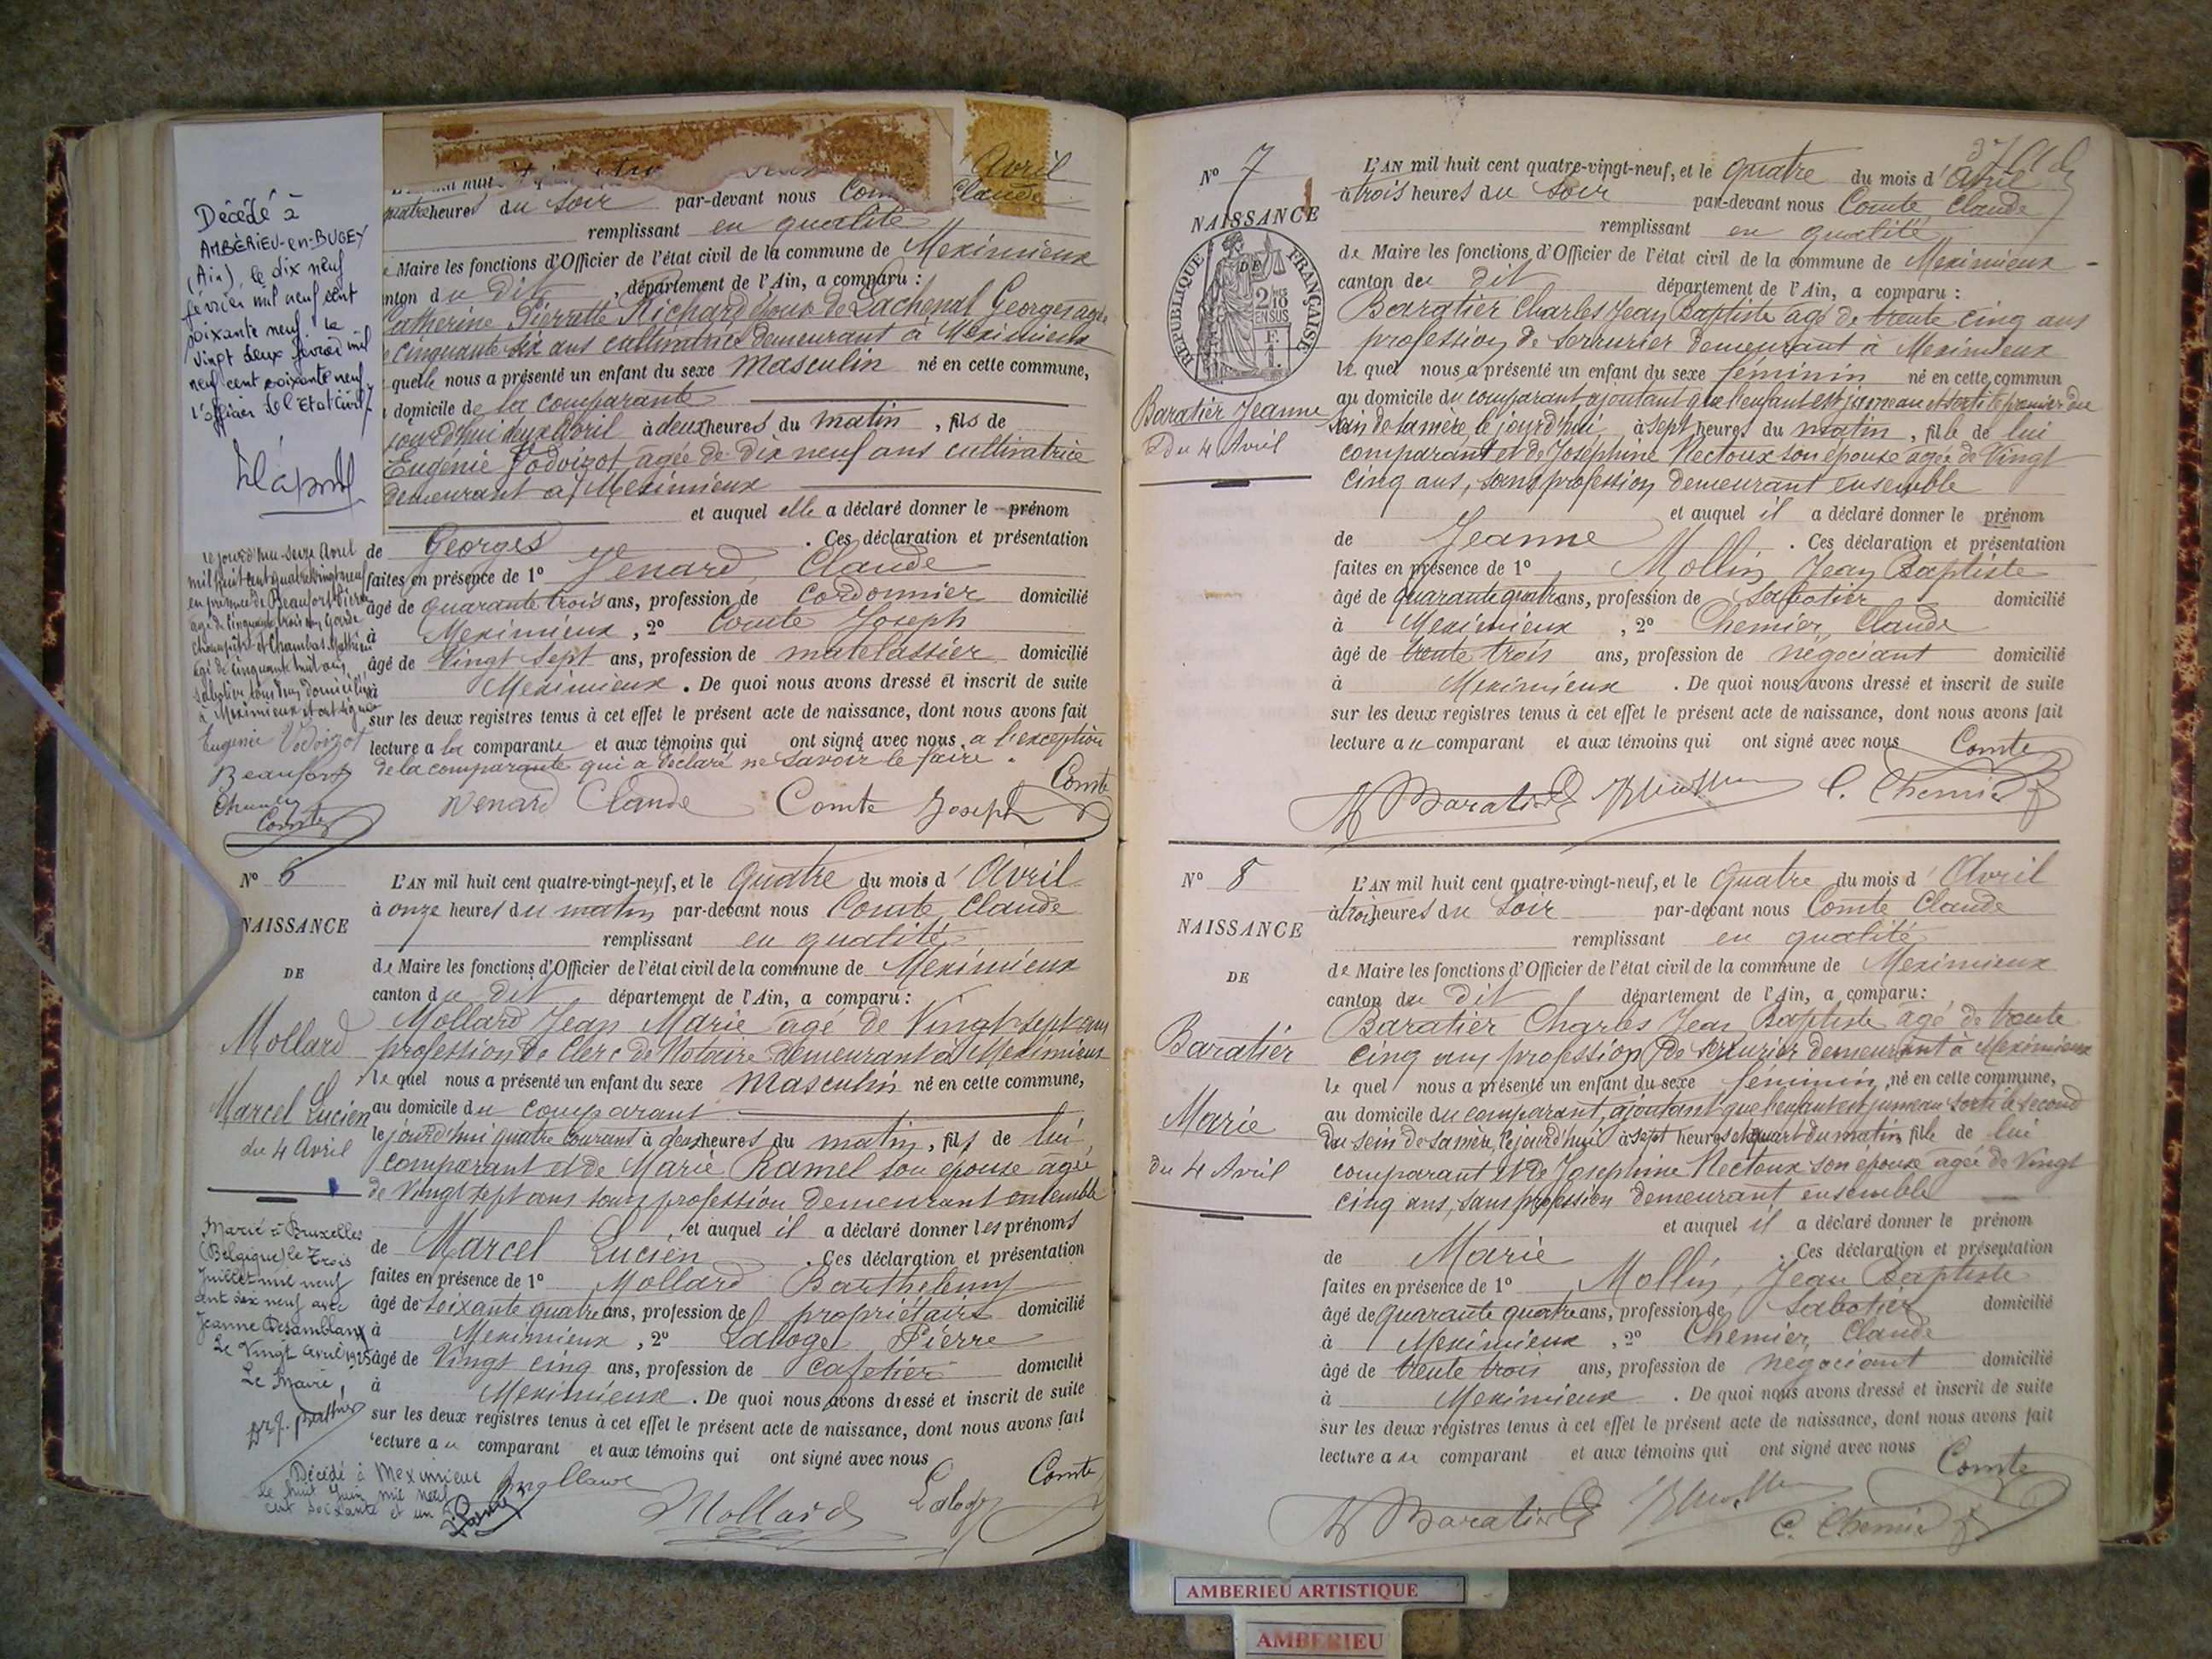 Décédé à
AMBÉRIEU-en-BUGEY
(Ain), le dix neuf
février mil neuf cent
soixante neuf. Le
vingt deux février mil
neuf cent soixante neuf
L'officier de l'Etat Civil
Avril
quatre heures du soir par-devant nous Claude
remplissant en qualité
Maire les fonctions d'Officier de l'état civil de la commune de Meximieux
canton du dit, département de l'Ain, a comparu :
Catherine Pierrette Richard épouse de Lachenal Georges agée
cinquante six ans cultivatrice demeurant à Meximieux
quelle nous a présenté un enfant du sexe masculin né en cette commune,
domicile de la comparante
jourd'hui deux Avril à deux heures du matin, fils de
Eugénie Vodoizot agée de dix neuf ans cultivatrice
demeurant à Meximieux
et auquel elle a déclaré donner le prénom
de Georges . Ces déclaration et présentation
faites en présence de 1° Venard Claude
âgé de quarante trois ans, profession de cordonnier domicilié
à Meximieux, 2° Comte Joseph
âgé de vingt sept ans, profession de matelassier domicilié
à Meximieux. De quoi nous avons dressé et inscrit de suite
sur les deux registres tenus à cet effet le présent acte de naissance, dont nous avons fait
lecture a la comparante et aux témoins qui ont signé avec nous a l'exception
de la comparante qui a déclaré ne savoir le faire.
Venard Claude Comte Joseph Comte
le jourd'hui seize Avril
mil huit cent quatre vingt neuf
en présence de Beaufort Pierre
agé de cinquante trois ans Garde
champêtre et Chambas Mathieu
agé de cinquante huit ans
sabotier tous deux domiciliés
à Meximieux et ont signé
Eugénie Vodoizot
Beaufort
Comte
N° 6
NAISSANCE
DE
Mollard
Marcel Lucien
du 4 Avril
L'AN mil huit cent quatre-vingt-neuf, et le quatre du mois d'Avril
à onze heures du matin par-devant nous Comte Claude
remplissant en qualité
de Maire les fonctions d'Officier de l'état civil de la commune de Meximieux
canton du dit département de l'Ain, a comparu :
Mollard Jean Marie agé de Vingt sept ans
profession de Clerc de Notaire demeurant à Meximieux
le quel nous a présenté un enfant du sexe masculin né en cette commune,
au domicile du comparant
le jourd'hui quatre courant à deux heures du matin, fils de lui
comparant et de Marie Ramel son épouse agée
de Vingt sept ans sans profession demeurant ensemble
et auquel il a déclaré donner les prénoms
de Marcel Lucien . Ces déclaration et présentation
faites en présence de 1° Mollard Barthelemy
âgé de soixante quatre ans, profession de propriétaire domicilié
à Meximieux, 2° Laloge Pierre
âgé de Vingt cinq ans, profession de cafetier domicilié
à Meximieux. De quoi nous avons dressé et inscrit de suite
sur les deux registres tenus à cet effet le présent acte de naissance, dont nous avons fait
lecture au comparant et aux témoins qui ont signé avec nous
Mollard Laloge Comte
Marié à Bruxelles
(Belgique) le trois
Juillet mil neuf
cent dix neuf avec
Jeanne Desamblanx
Le Vingt avril 1925
Le Maire,
Décédé à Meximieux
le huit Juin mil neuf
cent soixante et un
N° 7
NAISSANCE
DE
RÉPUBLIQUE FRANÇAISE
2/10 EN SUS
Baratier Jeanne
du 4 Avril
L'AN mil huit cent quatre-vingt-neuf, et le quatre du mois d'Avril
à trois heures du soir par-devant nous Comte Claude
remplissant en qualité
de Maire les fonctions d'Officier de l'état civil de la commune de Meximieux
canton du dit département de l'Ain, a comparu :
Baratier Charles Jean Baptiste agé de trente cinq ans
profession de serrurier demeurant à Meximieux
le quel nous a présenté un enfant du sexe féminin né en cette commun
au domicile du comparant ajoutant que l'enfant est jumeau et sorti le premier du
sein de sa mère le jourd'hui à sept heures du matin, fille de lui
comparant et de Joséphine Nectoux son épouse agée de Vingt
cinq ans, sans profession demeurant ensemble
et auquel il a déclaré donner le prénom
de Jeanne . Ces déclaration et présentation
faites en présence de 1° Mollin Jean Baptiste
âgé de quarante quatre ans, profession de sabotier domicilié
à Meximieux, 2° Chemier Claude
âgé de trente trois ans, profession de négociant domicilié
à Meximieux. De quoi nous avons dressé et inscrit de suite
sur les deux registres tenus à cet effet le présent acte de naissance, dont nous avons fait
lecture au comparant et aux témoins qui ont signé avec nous Comte
Baratier C. Chemier
N° 8
NAISSANCE
DE
Baratier
Marie
du 4 Avril
L'AN mil huit cent quatre-vingt-neuf, et le quatre du mois d'Avril
à trois heures du soir par-devant nous Comte Claude
remplissant en qualité
de Maire les fonctions d'Officier de l'état civil de la commune de Meximieux
canton du dit département de l'Ain, a comparu :
Baratier Charles Jean Baptiste agé de trente
cinq ans profession de serrurier demeurant à Meximieux
le quel nous a présenté un enfant du sexe féminin, né en cette commune,
au domicile du comparant, ajoutant que l'enfant est jumeau sorti le second
du sein de sa mère, le jourd'hui à sept heures et quart du matin fille de lui
comparant et de Joséphine Nectoux son épouse agée de Vingt
cinq ans, sans profession demeurant ensemble
et auquel il a déclaré donner le prénom
de Marie . Ces déclaration et présentation
faites en présence de 1° Mollin, Jean Baptiste
âgé de quarante quatre ans, profession de sabotier domicilié
à Meximieux, 2° Chemier, Claude
âgé de trente trois ans, profession de négociant domicilié
à Meximieux. De quoi nous avons dressé et inscrit de suite
sur les deux registres tenus à cet effet le présent acte de naissance, dont nous avons fait
lecture au comparant et aux témoins qui ont signé avec nous Comte
Baratier C. Chemier
AMBERIEU ARTISTIQUE
AMBERIEU